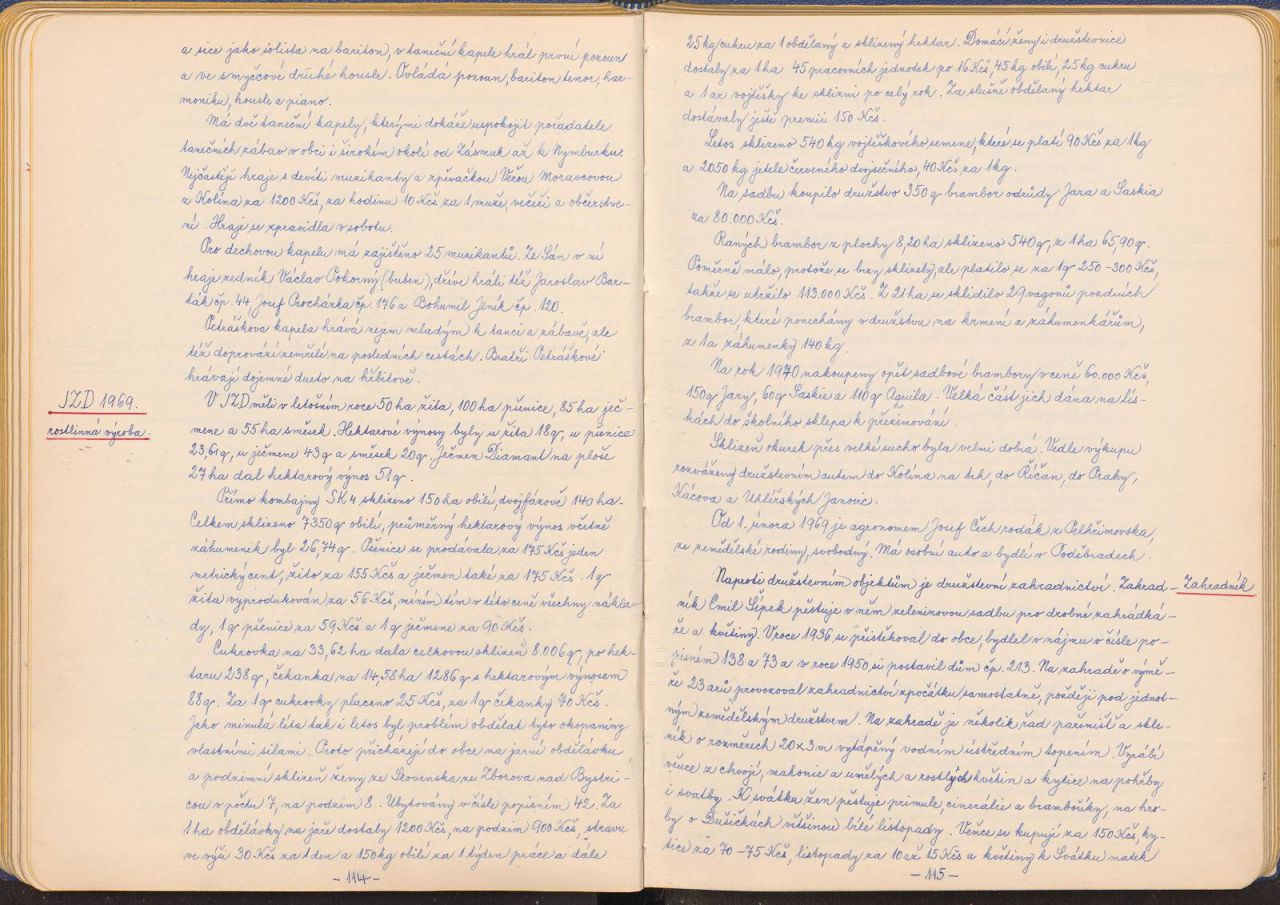 a sice jako sólista na bariton, v taneční kapele hrát první pozoun
a ve smyčcové druhé housle. Ovládá pozoun, bariton tenor, har-
moniku, housle a piano.
Má dvě taneční kapely, kterými dokáže uspokojit pořadatele
tanečních zábav v obci i širokém okolí od Zásmuk až k Nymburku.
Nejčastěji hraje s devíti muzikanty a zpěvačkou Věrou Moravcovou
z Kolína za 1200 Kčs, za hodinu 10 Kčs za 1 muže, večeři a občerstve-
ní. Hraje se zpravidla v sobotu.
Pro dechovou kapelu má zajištěno 25 muzikantů. Ze Sán v ní
hraje zedník Václav Pokorný (buben), dříve hráli též Jaroslav Bar-
ták čp. 44, Josef Procházka čp. 176 a Bohumil Jeník čp. 120.
Petráškova kapela hrává nejen mladým k tanci a zábavě, ale
též doprovází zemřelé na posledních cestách. Bratři Petráškové
hrávají dojemné dueto na hřbitově.
JZD 1969.
rostlinná výroba.
V JZD měli v letošním roce 50 ha žita, 100 ha pšenice, 85 ha ječ-
mene a 55 ha směsek. Hektarové výnosy byly u žita 18 q, u pšenice
23,61 q, u ječmene 43 q a směsek 20 q. Ječmen Diamant na ploše
27 ha dal hektarový výnos 51 q.
Přímo kombajny SK 4 sklizeno 150 ha obilí, dvojfázově 140 ha.
Celkem sklizeno 7350 q obilí, průměrný hektarový výnos včetně
záhumenek byl 26,74 q. Pšenice se prodávala za 175 Kčs jeden
metrický cent, žito za 155 Kčs a ječmen také za 175 Kčs. 1 q
žita vyprodukován za 56 Kčs, míním tím v této ceně všechny nákla-
dy, 1 q pšenice za 59 Kčs a 1 q ječmene za 90 Kčs.
Cukrovka na 33,62 ha dala celkovou sklizeň 8.006 q, po hek-
taru 238 q, čekanka na 14,58 ha 1286 q s hektarovým výnosem
88 q. Za 1 q cukrovky placeno 25 Kčs, za 1 q čekanky 70 Kčs.
Jako minulá léta tak i letos byl problém obdělat tyto okopaniny
vlastními silami. Proto přicházejí do obce na jarní obdělávku
a podzimní sklizeň ženy ze Slovenska ze Zborova nad Bystri-
cou v počtu 7, na podzim 8. Ubytovány v čísle popisném 42. Za
1 ha obdělávky na jaře dostaly 1200 Kčs, na podzim 900 Kčs, stravu
ve výši 30 Kčs za 1 den a 150 kg obilí za 1 týden práce a dále
- 114 -
25 kg cukru za 1 obdělaný a sklizený hektar. Domácí ženy i družstevnice
dostaly za 1 ha 45 pracovních jednotek po 16 Kčs, 45 kg obilí, 25 kg cukru
a 1 ar vojtěšky ke sklizni po celý rok. Za slušně obdělaný hektar
dostávaly ještě premii 150 Kčs.
Letos sklizeno 540 kg vojtěškového semene, které se platí 90 Kčs za 1 kg
a 2050 kg jetele červeného dvojsečného, 40 Kčs za 1 kg.
Na sadbu koupilo družstvo 350 q brambor odrůdy Jara a Saskia
za 80.000 Kčs.
Raných brambor z plochy 8,20 ha sklizeno 540 q, z 1 ha 65,90 q.
Poměrně málo, protože se brzy sklízely, ale platilo se za 1 q 250-300 Kčs,
takže se utržilo 113.000 Kčs. Z 21 ha se sklidilo 29 vagonů pozdních
brambor, které ponechány v družstvu na krmení a záhumenkářům,
z 1 a záhumenky 140 kg.
Na rok 1970 nakoupeny opět sadbové brambory v ceně 60.000 Kčs,
150 q Jary, 60 q Saskie a 110 q Aquila. Velká část jich dána na lís-
kách do školního sklepa k přezimování.
Sklizeň okurek přes velké sucho byla velmi dobrá. Vedle výkupu
rozváženy družstevním autem do Kolína na trh, do Říčan, do Prahy,
Kácova a Uhlířských Janovic.
Od 1. února 1969 je agronomem Josef Čech rodák z Pelhřimovska,
ze zemědělské rodiny, svobodný. Má osobní auto a bydlí v Poděbradech.
Naproti družstevním objektům je družstevní zahradnictví. Zahrad-
Zahradník
ník Emil Šípek pěstuje v něm zeleninovou sadbu pro drobné zahrádká-
ře a květiny. V roce 1936 se přistěhoval do obce, bydlel v nájmu v čísle po-
pisném 138 a 73 a v roce 1950 si postavil dům čp. 213. Na zahradě o výmě-
ře 23 arů provozoval zahradnictví zpočátku samostatně, později pod jednot-
ným zemědělským družstvem. Na zahradě je několik řad pařenišť a skle-
ník o rozměrech 20x3 m vytápěný vodním ústředním topením. Vyrábí
věnce z chvojí, mahonie a umělých a rostlých květin a kytice na pohřby
i svatby. K svátku žen pěstuje primule, cinerálie a bramboříky, na hro-
by o Dušičkách většinou bílé listopady. Věnce se kupují za 150 Kčs, ky-
tice za 70-75 Kčs, listopady za 10 až 15 Kčs a květiny k Svátku matek
- 115 -